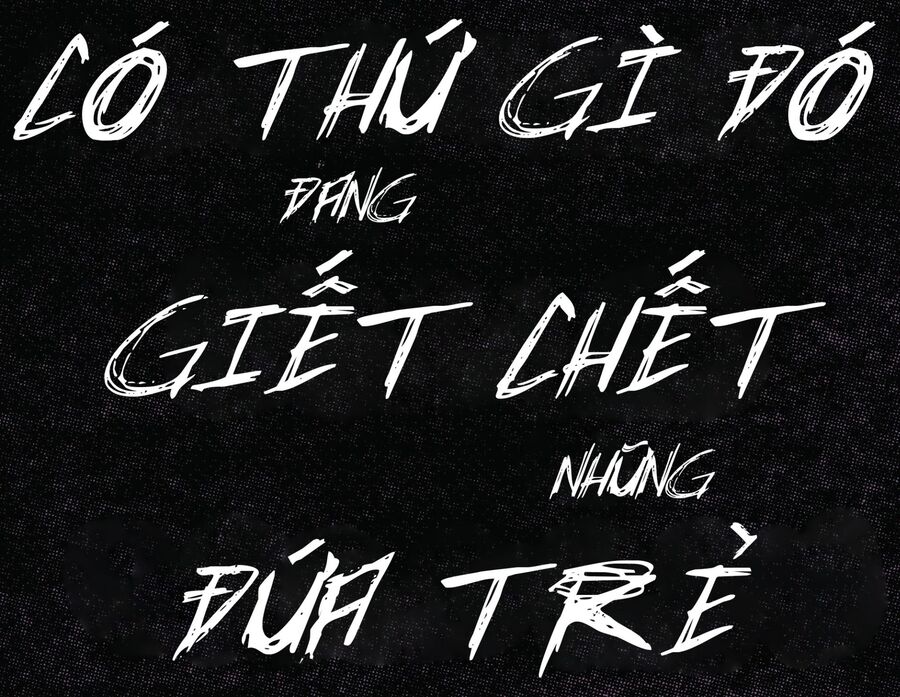 CÓ THỨ GÌ ĐÓ
ĐANG
GIẾT CHẾT
NHŨNG
ĐỨA TRẺ